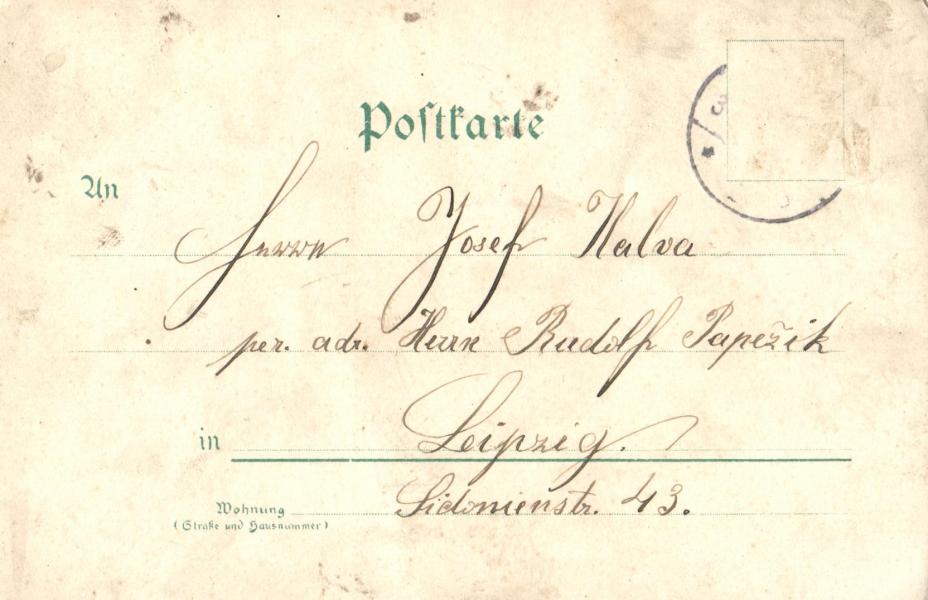 Postkarte
An
Herrn Josef Halva
per. adr. Herrn Rudolf Papežik
in Leipzig.
Wohnung Sidonienstr. 43.
(Straße und Hausnummer)